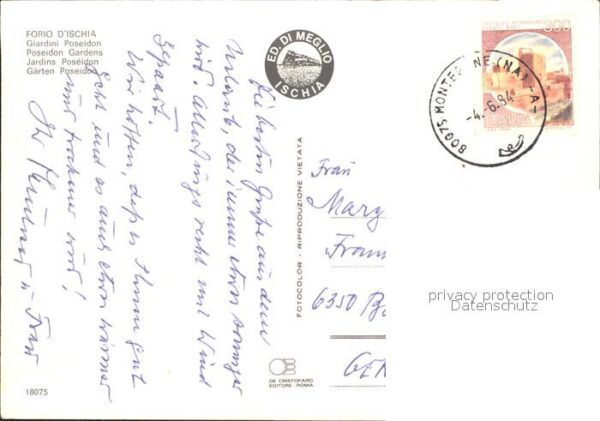 FORIO D'ISCHIA
Giardini Poseidon
Poseidon Gardens
Jardins Poséidon
Gärten Poseidon
ED. DI MEGLIO
ISCHIA
Die besten Grüße aus dem
Urlaub, der immer etwas
wird. Allerdings recht mit Wind
gepaart.
Wir hoffen, daß es Ihnen gut
geht und es auch etwas wärmer
und trockener wird!
Ihr
u. Frau
18075
FOTOCOLOR - RIPRODUZIONE VIETATA
DE CRISTOFARO
EDITORE ROMA
Frau
Marg
Fran
6350 B
GER
300
ITALIA
80075 MONTERONE (NA)
-4.6.84
privacy protection
Datenschutz